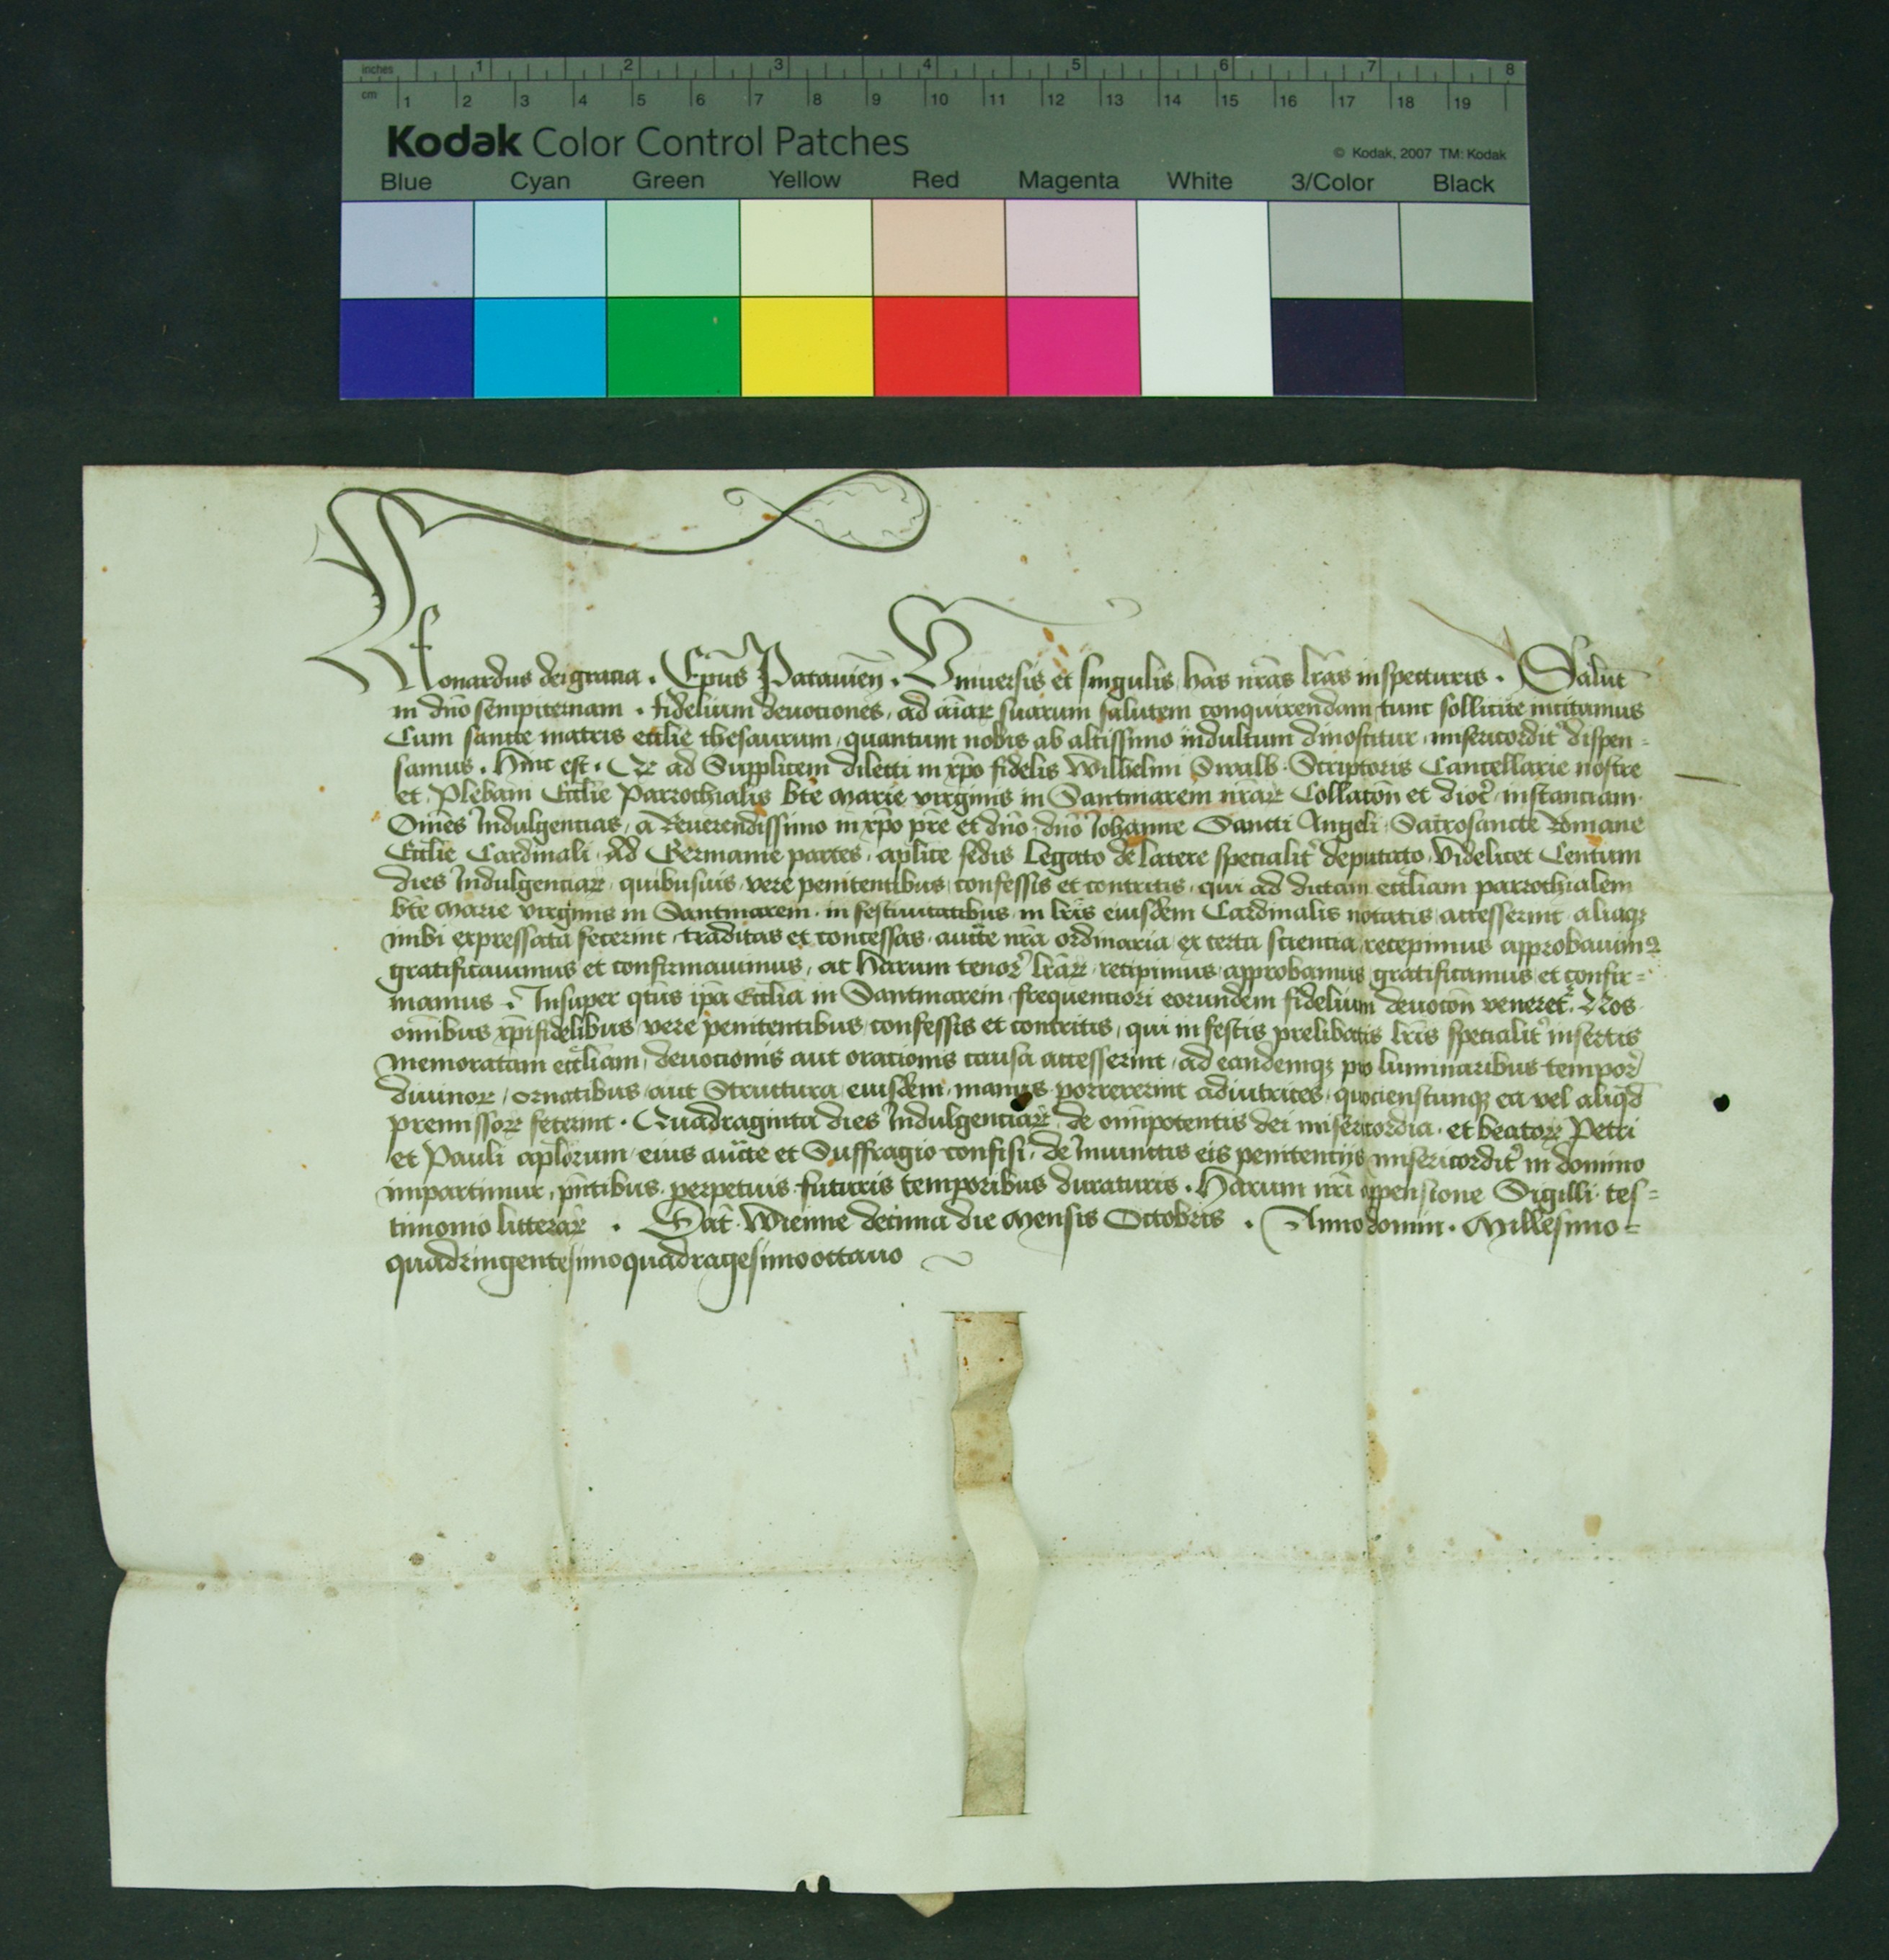 inches 1 2 3 4 5 6 7 8
cm 1 2 3 4 5 6 7 8 9 10 11 12 13 14 15 16 17 18 19
Kodak Color Control Patches
© Kodak, 2007 TM: Kodak
Blue Cyan Green Yellow Red Magenta White 3/Color Black
Leonardus dei gracia . Ep̄us Patauien̄ . Vniuersis et singulis has nr̄as lr̄as inspecturis . Salut̄
in dn̄o sempiternam . fidelium deuotiones, ad aīaꝝ suarum salutem conquirendam tunc sollicite incitamus
Cum sancte matris eccl̄ie thesaurum, quantum nobis ab altissimo indultum dinoscitur, misericordit̄ dispen=
samus . Hinc est . Qꝛ ad Supplicem dilecti in xp̄o fidelis Wilhelmi Swalb Scriptoris Cancellarie nostre
et Plebani Eccl̄ie Parrochialis bt̄e Marie virginis in Santmarein nr̄aꝝ Collac̄on et dioc̄ instanciam
Om̄es Indulgencias, a Reuerendissimo in xp̄o pr̄e et dn̄o dn̄o Iohanne Sancti Angeli Sacrosancte Romane
Eccl̄ie Cardinali Ad Germanie partes, ap̄lice sedis Legato de latere specialit̄ deputato, Videlicet Centum
dies Indulgenciaꝝ, quibusuis vere penitentibus, confessis et contritis, qui ad dictam eccl̄iam parrochialem
bt̄e Marie virginis in Santmarein in festiuitatibus in lr̄is eiusdem Cardinalis notatis accesserint aliaqꝫ
inibi expressata fecerint, traditas et concessas, auct̄e nr̄a ordinaria ex certa scientia recepimus approbauimꝰ
gratificauimus et confirmauimus, ac harum tenor̄ lr̄aꝝ recipimus approbamus gratificamus et confir=
mamus . Insuper qt̄us ip̄a Eccl̄ia in Santmarein frequenciori eorundem fidelium deuoc̄on veneret̄. Nos
om̄ibus xp̄ifidelibus vere penitentibus confessis et contritis, qui in festis prelibatis lr̄is specialit̄ insertis
memoratam eccl̄iam, deuotionis aut orationis causa accesserint, ad eandemqꝫ pro luminaribus tempor̄
diuinoꝝ, ornatibus aut Structura eiusdem manus porrexerint adiutrices, quocienscunqꝫ ea vel aliqd̄
premissoꝝ fecerint . Quadraginta dies Indulgenciaꝝ, de om̄ipotentis dei misericordia et beatoꝝ Petri
et Pauli ap̄lorum eius auct̄e et Suffragio confisi, de Iniunctis eis penitentijs misericordit̄ in domino
impartimur, pn̄tibus perpetuis futuris temporibus duraturis . Harum nr̄i appensione Sigilli tes=
timonio litteraꝝ . Dat̄ Wienne decima die Mensis Octobris . Anno domini . Millesimo=
quadringentesimoquadragesimooctauo